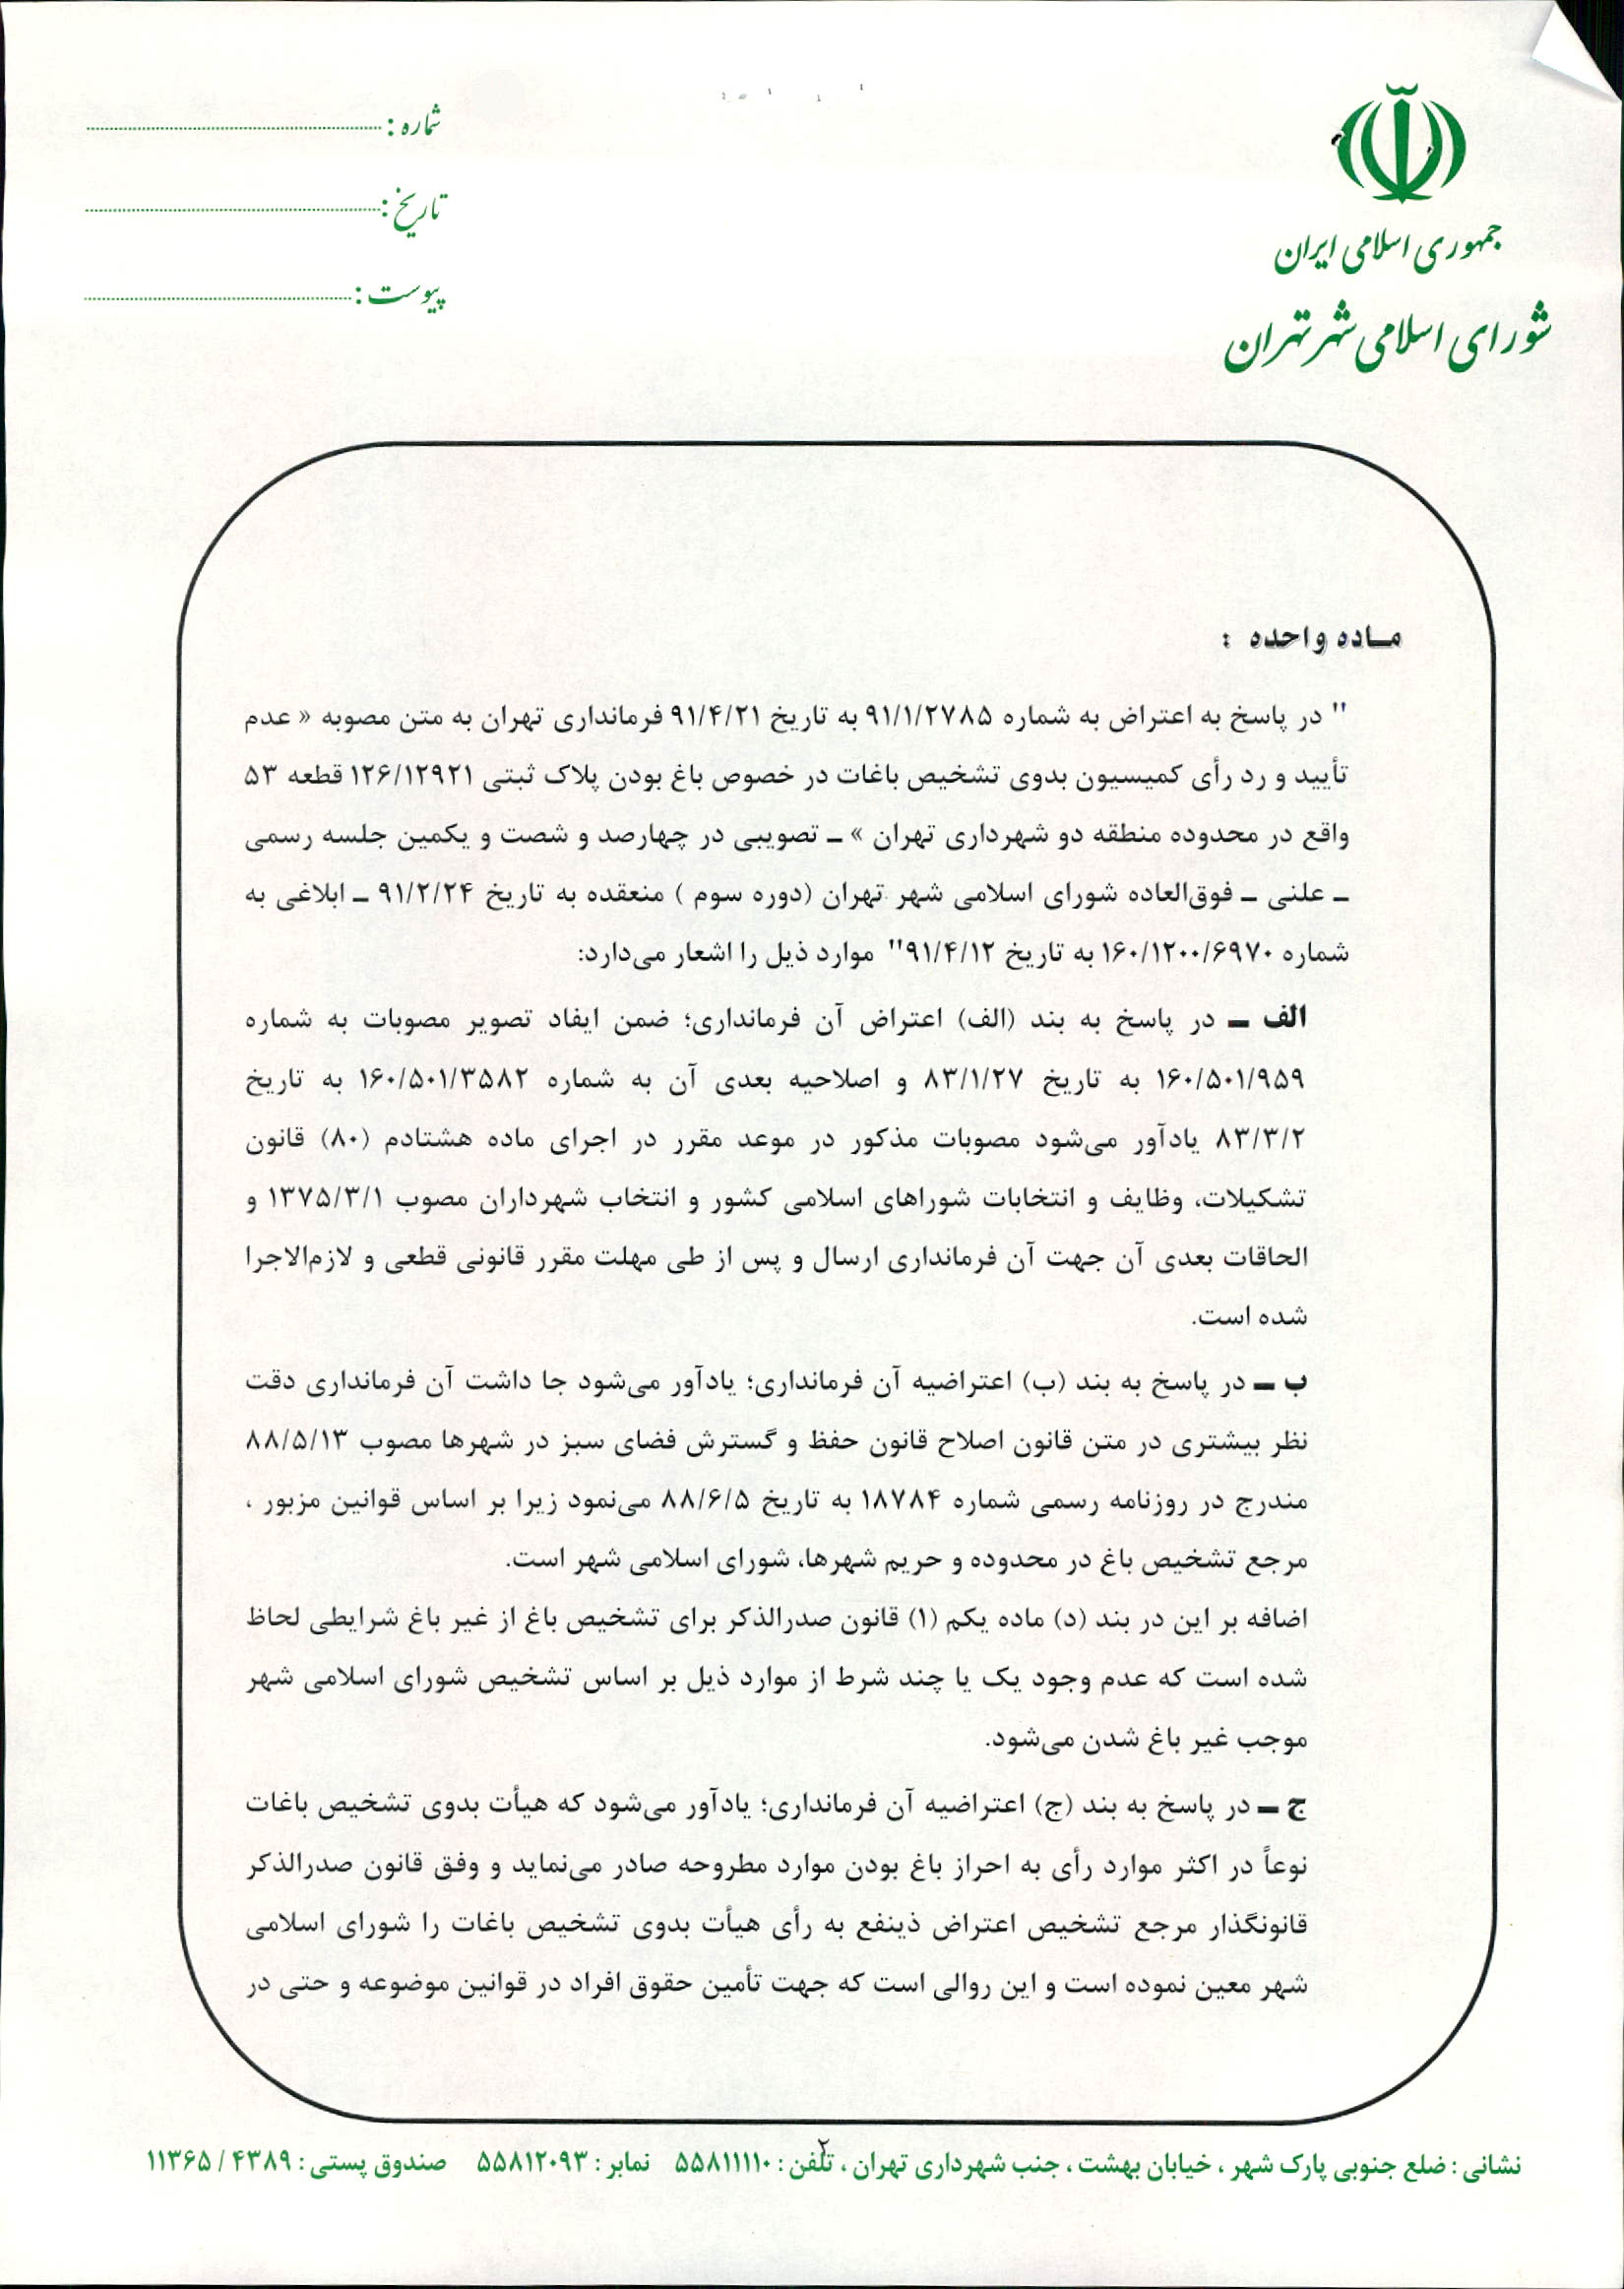 جمهوری اسلامی ایران
شورای اسلامی شهر تهران
شماره :
تاریخ :
پیوست :
مـاده واحده :
" در پاسخ به اعتراض به شماره ۹۱/۱/۲۷۸۵ به تاریخ ۹۱/۴/۲۱ فرمانداری تهران به متن مصوبه « عدم
تأیید و رد رأی کمیسیون بدوی تشخیص باغات در خصوص باغ بودن پلاک ثبتی ۱۲۶/۱۲۹۲۱ قطعه ۵۳
واقع در محدوده منطقه دو شهرداری تهران » ـ تصویبی در چهارصد و شصت و یکمین جلسه رسمی
ـ علنی ـ فوق‌العاده شورای اسلامی شهر تهران (دوره سوم ) منعقده به تاریخ ۹۱/۲/۲۴ ـ ابلاغی به
شماره ۱۶۰/۱۲۰۰/۶۹۷۰ به تاریخ ۹۱/۴/۱۲" موارد ذیل را اشعار می‌دارد:
الف ـ در پاسخ به بند (الف) اعتراض آن فرمانداری؛ ضمن ایفاد تصویر مصوبات به شماره
۱۶۰/۵۰۱/۹۵۹ به تاریخ ۸۳/۱/۲۷ و اصلاحیه بعدی آن به شماره ۱۶۰/۵۰۱/۳۵۸۲ به تاریخ
۸۳/۳/۲ یادآور می‌شود مصوبات مذکور در موعد مقرر در اجرای ماده هشتادم (۸۰) قانون
تشکیلات، وظایف و انتخابات شوراهای اسلامی کشور و انتخاب شهرداران مصوب ۱۳۷۵/۳/۱ و
الحاقات بعدی آن جهت آن فرمانداری ارسال و پس از طی مهلت مقرر قانونی قطعی و لازم‌الاجرا
شده است.
ب ـ در پاسخ به بند (ب) اعتراضیه آن فرمانداری؛ یادآور می‌شود جا داشت آن فرمانداری دقت
نظر بیشتری در متن قانون اصلاح قانون حفظ و گسترش فضای سبز در شهرها مصوب ۸۸/۵/۱۳
مندرج در روزنامه رسمی شماره ۱۸۷۸۴ به تاریخ ۸۸/۶/۵ می‌نمود زیرا بر اساس قوانین مزبور ،
مرجع تشخیص باغ در محدوده و حریم شهرها، شورای اسلامی شهر است.
اضافه بر این در بند (د) ماده یکم (۱) قانون صدرالذکر برای تشخیص باغ از غیر باغ شرایطی لحاظ
شده است که عدم وجود یک یا چند شرط از موارد ذیل بر اساس تشخیص شورای اسلامی شهر
موجب غیر باغ شدن می‌شود.
ج ـ در پاسخ به بند (ج) اعتراضیه آن فرمانداری؛ یادآور می‌شود که هیأت بدوی تشخیص باغات
نوعاً در اکثر موارد رأی به احراز باغ بودن موارد مطروحه صادر می‌نماید و وفق قانون صدرالذکر
قانونگذار مرجع تشخیص اعتراض ذینفع به رأی هیأت بدوی تشخیص باغات را شورای اسلامی
شهر معین نموده است و این روالی است که جهت تأمین حقوق افراد در قوانین موضوعه و حتی در
۲
نشانی : ضلع جنوبی پارک شهر ، خیابان بهشت ، جنب شهرداری تهران ، تلفن : ۵۵۸۱۱۱۱۰ نمابر : ۵۵۸۱۲۰۹۳ صندوق پستی : ۴۳۸۹ / ۱۱۳۶۵